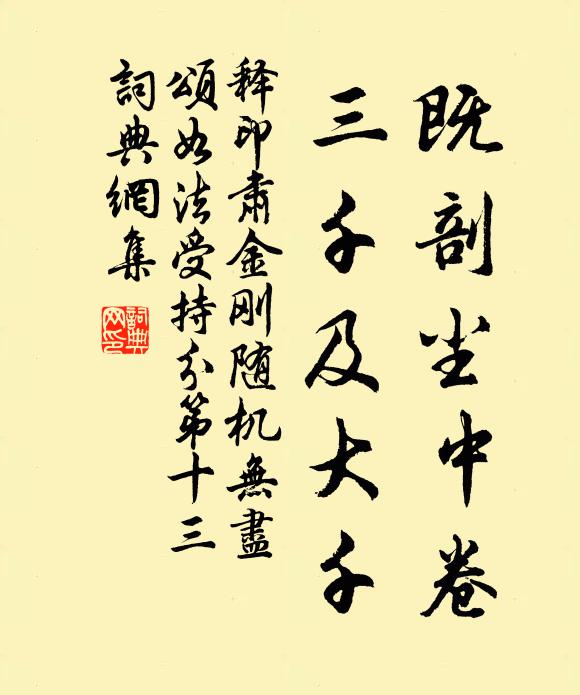 既剖尘中卷
三千及大千
释印肃金刚随机無盡
頌如法受持分第十三
詞典網集
詞典网印